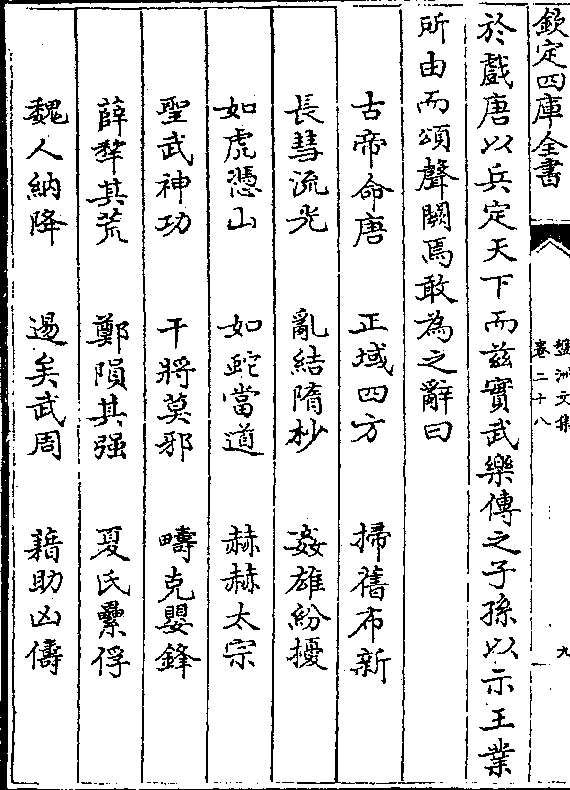 欽定四庫全書
盤洲文集
卷二十八
九
於戲唐以兵定天下而兹實武樂傳之子孫以示王業
所由而頌聲闕焉敢為之辭曰
古帝命唐 正域四方 掃舊布新
長彗流光 亂結隋杪 姦雄紛擾
如虎憑山 如蛇當道 赫赫太宗
聖武神功 干將莫邪 疇克嬰鋒
薛犂其荒 鄭隕其强 夏氏纍俘
魏人納降 逷矣武周 藉助凶儔